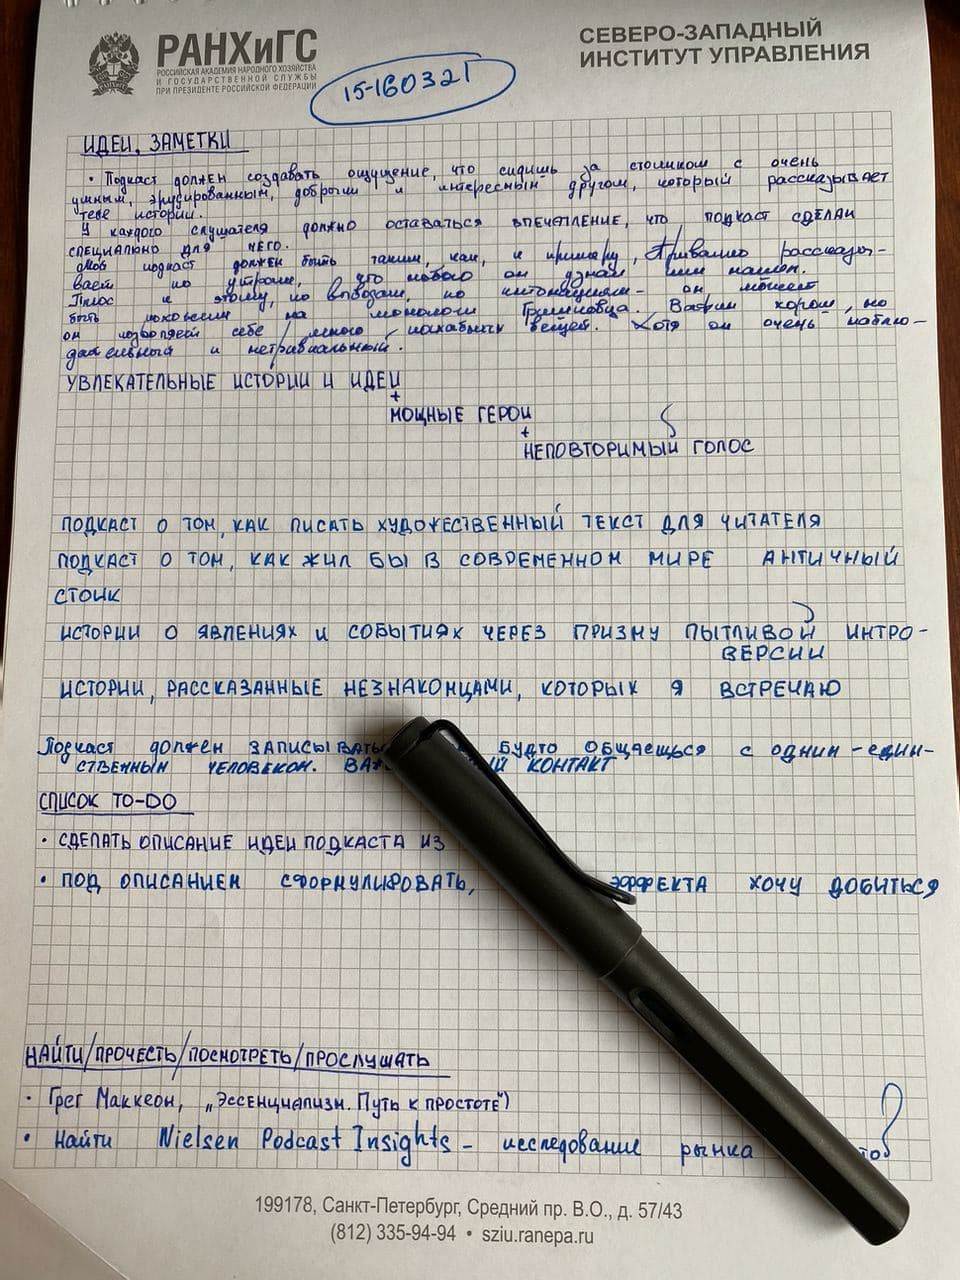 РАНХиГС
РОССИЙСКАЯ АКАДЕМИЯ НАРОДНОГО ХОЗЯЙСТВА
И ГОСУДАРСТВЕННОЙ СЛУЖБЫ
ПРИ ПРЕЗИДЕНТЕ РОССИЙСКОЙ ФЕДЕРАЦИИ
СЕВЕРО-ЗАПАДНЫЙ
ИНСТИТУТ УПРАВЛЕНИЯ
15-160321
ИДЕИ, ЗАМЕТКИ
• Подкаст должен создавать ощущение, что сидишь за столиком с очень
умным, эрудированным, добрым и интересным другом, который рассказывает
тебе истории.
У каждого слушателя должно оставаться впечатление, что подкаст сделан
специально для него.
подкаст должен быть таким, как, к примеру, рассказы-
вает по утрам, что нового он узнал или нашел.
Плюс к этому, по вопросам, по интонациям - он может
быть похожим на монологи Гришковца. хорош, но
он позволяет себе много вещей. Хотя он очень наблю-
дательный и нетривиальный.
УВЛЕКАТЕЛЬНЫЕ ИСТОРИИ И ИДЕИ
+
МОЩНЫЕ ГЕРОИ
+
НЕПОВТОРИМЫЙ ГОЛОС
ПОДКАСТ О ТОМ, КАК ПИСАТЬ ХУДОЖЕСТВЕННЫЙ ТЕКСТ ДЛЯ ЧИТАТЕЛЯ
ПОДКАСТ О ТОМ, КАК ЖИЛ БЫ В СОВРЕМЕННОМ МИРЕ АНТИЧНЫЙ
СТОИК
ИСТОРИИ О ЯВЛЕНИЯХ И СОБЫТИЯХ ЧЕРЕЗ ПРИЗМУ ПЫТЛИВОЙ ИНТРО-
ВЕРСИИ
ИСТОРИИ, РАССКАЗАННЫЕ НЕЗНАКОМЦАМИ, КОТОРЫХ Я ВСТРЕЧАЮ
Подкаст должен записывать будто общаешься с одним-един-
ственным человеком. КОНТАКТ
СПИСОК TO-DO
• СДЕЛАТЬ ОПИСАНИЕ ИДЕИ ПОДКАСТА ИЗ
• ПОД ОПИСАНИЕМ СФОРМУЛИРОВАТЬ, ЭФФЕКТА ХОЧУ ДОБИТЬСЯ
НАЙТИ/ПРОЧЕСТЬ/ПОСМОТРЕТЬ/ПРОСЛУШАТЬ
• Грег Маккеон, „Эссенциализм. Путь к простоте")
• Найти Nielsen Podcast Insights - исследование рынка
199178, Санкт-Петербург, Средний пр. В.О., д. 57/43
(812) 335-94-94 • sziu.ranepa.ru